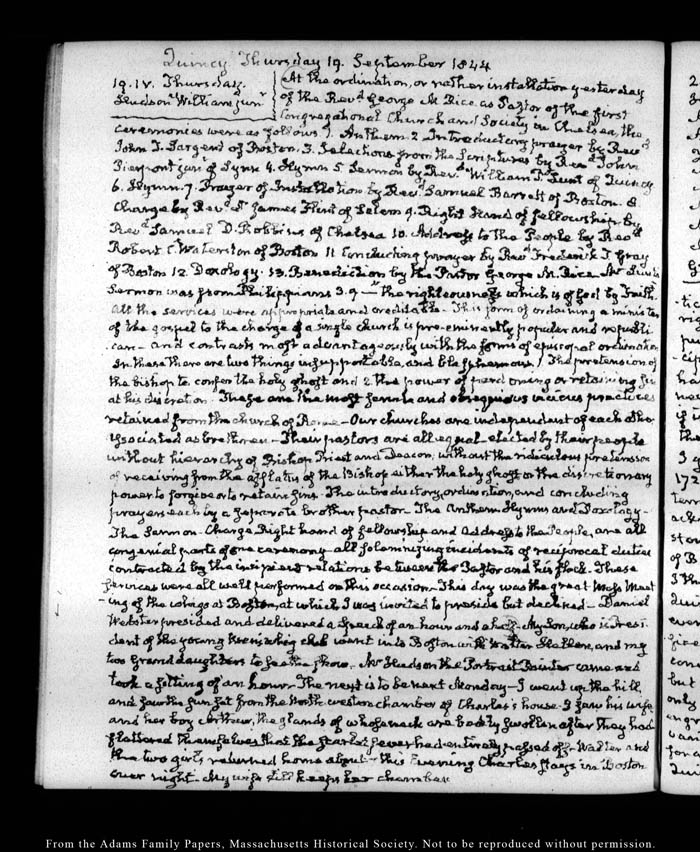 Quincy Thursday 19. September 1844
19. IV. Thursday.
Hudson William junr
At the ordination, or rather installation yesterday
of the Revd George M. Rice as Pastor of the first
Congregational Church and Society in Chelsea, the
ceremonies were as follows 1. Anthem. 2. Introductory prayer by Revd
John T. Sargent of Boston. 3. Selections from the Scriptures by Revd John
Pierpont junr of Lynn 4. Hymn 5 Sermon by Revd William P. Lunt of Quincy
6. Hymn. 7. Prayer of Installation by Revd Samuel Barrett of Boston. 8
Charge by Revd Dr James Flint of Salem 9. Right Hand of fellowship, by
Revd Samuel D. Robbins of Chelsea 10. Address to the People by Revd
Robert C. Waterston of Boston 11 Concluding prayer by Revd Frederick T. Gray
of Boston 12. Doxology. 13. Benediction by the Pastor George M. Rice. Mr Lunt's
Sermon was from Philippians 3. 9 — "the righteousness which is of God by faith.
All the services were appropriate and creditable. This form of ordaining a minister
of the gospel to the charge of a single church is pre-eminently popular and republi
-can - and contrasts most advantageously with the forms of episcopal ordination
In these there are two things insupportable, and blasphemous. 1. The pretension of
the bishop to confer the holy ghost and 2. the power of pardoning or retaining sin
at his discretion. These are the most and obsequious vicious practices
retained from the church of Rome - Our churches are independent of each other
associated as brethren - Their pastors are all equal elected by their people
without hierarchy of Bishop Priest and Deacon, without the ridiculous pretension
of receiving from the afflatus of the Bishop either the holy ghost or the discretionary
power to forgive or to retain sins. The introductory, ordination, and concluding
prayers each by a separate brother pastor. The Anthem Hymns and Doxology -
The Sermon - Charge, Right hand of fellowship and Address to the People, are all
congenial parts of one ceremony - all solemnizing incidents of reciprocal duties
contracted by the inspired relations between the Pastor and his flock. These
services were all well performed on this occasion - This day was the great Mass Meet
-ing of the whigs at Boston, at which I was invited to preside but declined - Daniel
Webster presided and delivered a speech of an hour and a half. My Son, who is Presi
dent of the young whig club went into Boston with Walter Hellen, and my
two Grand daughters to see the show. Mr Hudson the Portrait Painter came and
took a sitting of an hour. The next is to be next Monday - I went up the hill,
and saw the sun set from the North western chamber of Charles's house. I saw his wife
and her boy Arthur, the glands of whose neck are badly swollen after they had
flattered themselves that the scarlet fever had entirely passed off. Walter and
the two girls returned home about - this Evening Charles stays in Boston
over night. My wife still keeps her chamber.
From the Adams Family Papers, Massachusetts Historical Society. Not to be reproduced without permission.